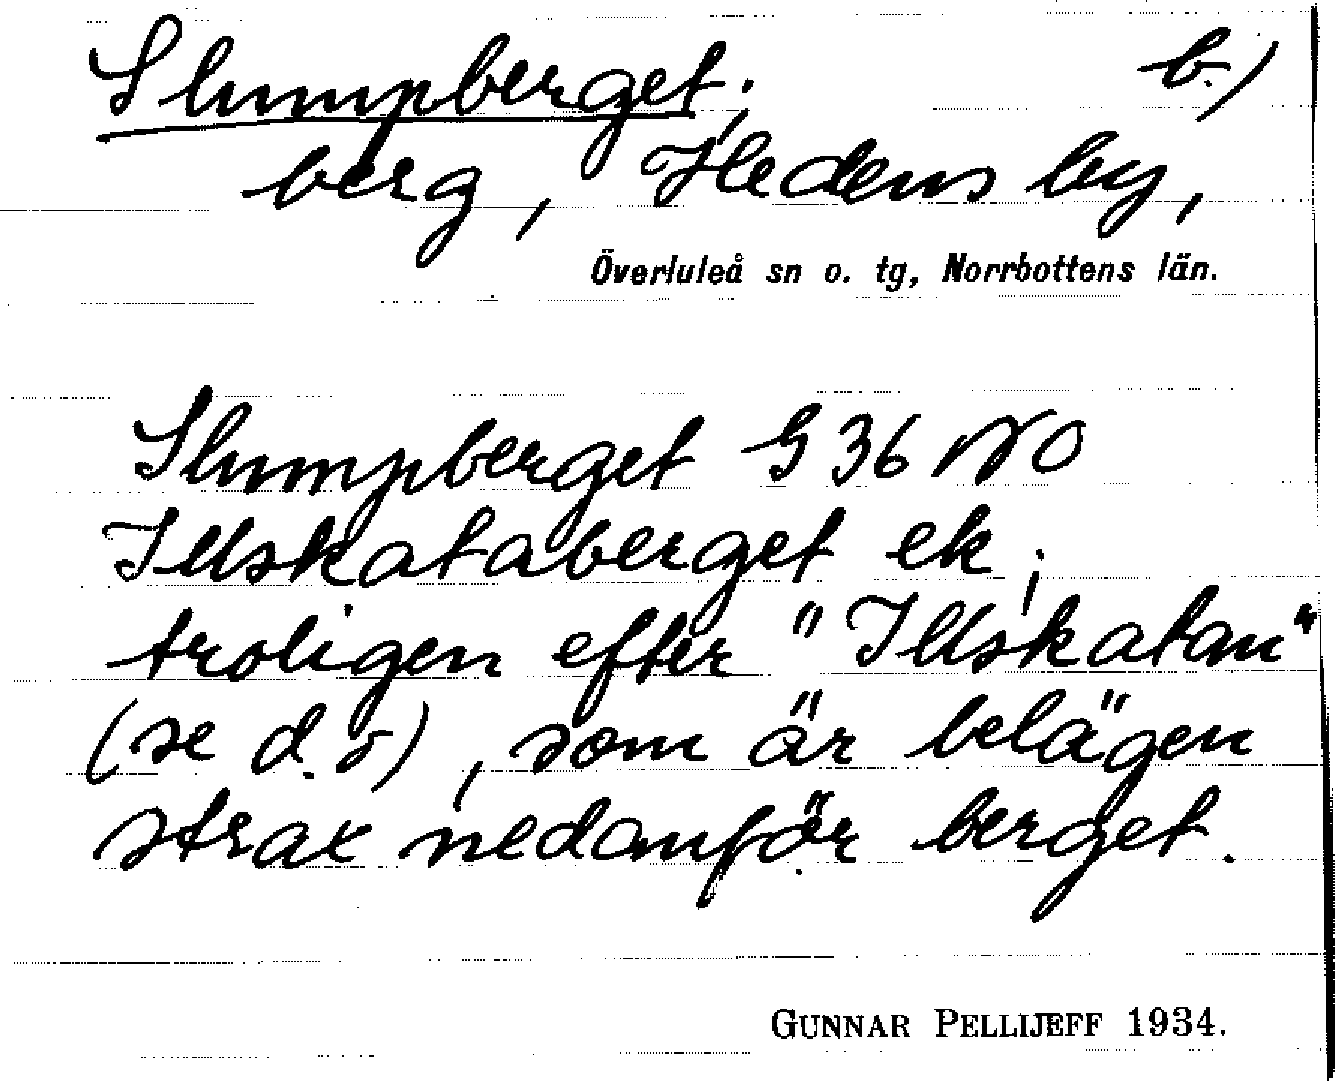 Slumpberget; b.)
berg, Hedens by,
Överluleå sn o. tg, Norrbottens län.
Slumpberget G 36 NO
Illskataberget ek;
troligen efter "Illskatan"
(se d.o), som är belägen
strax nedanför berget.
GUNNAR PELLIJEFF 1934.